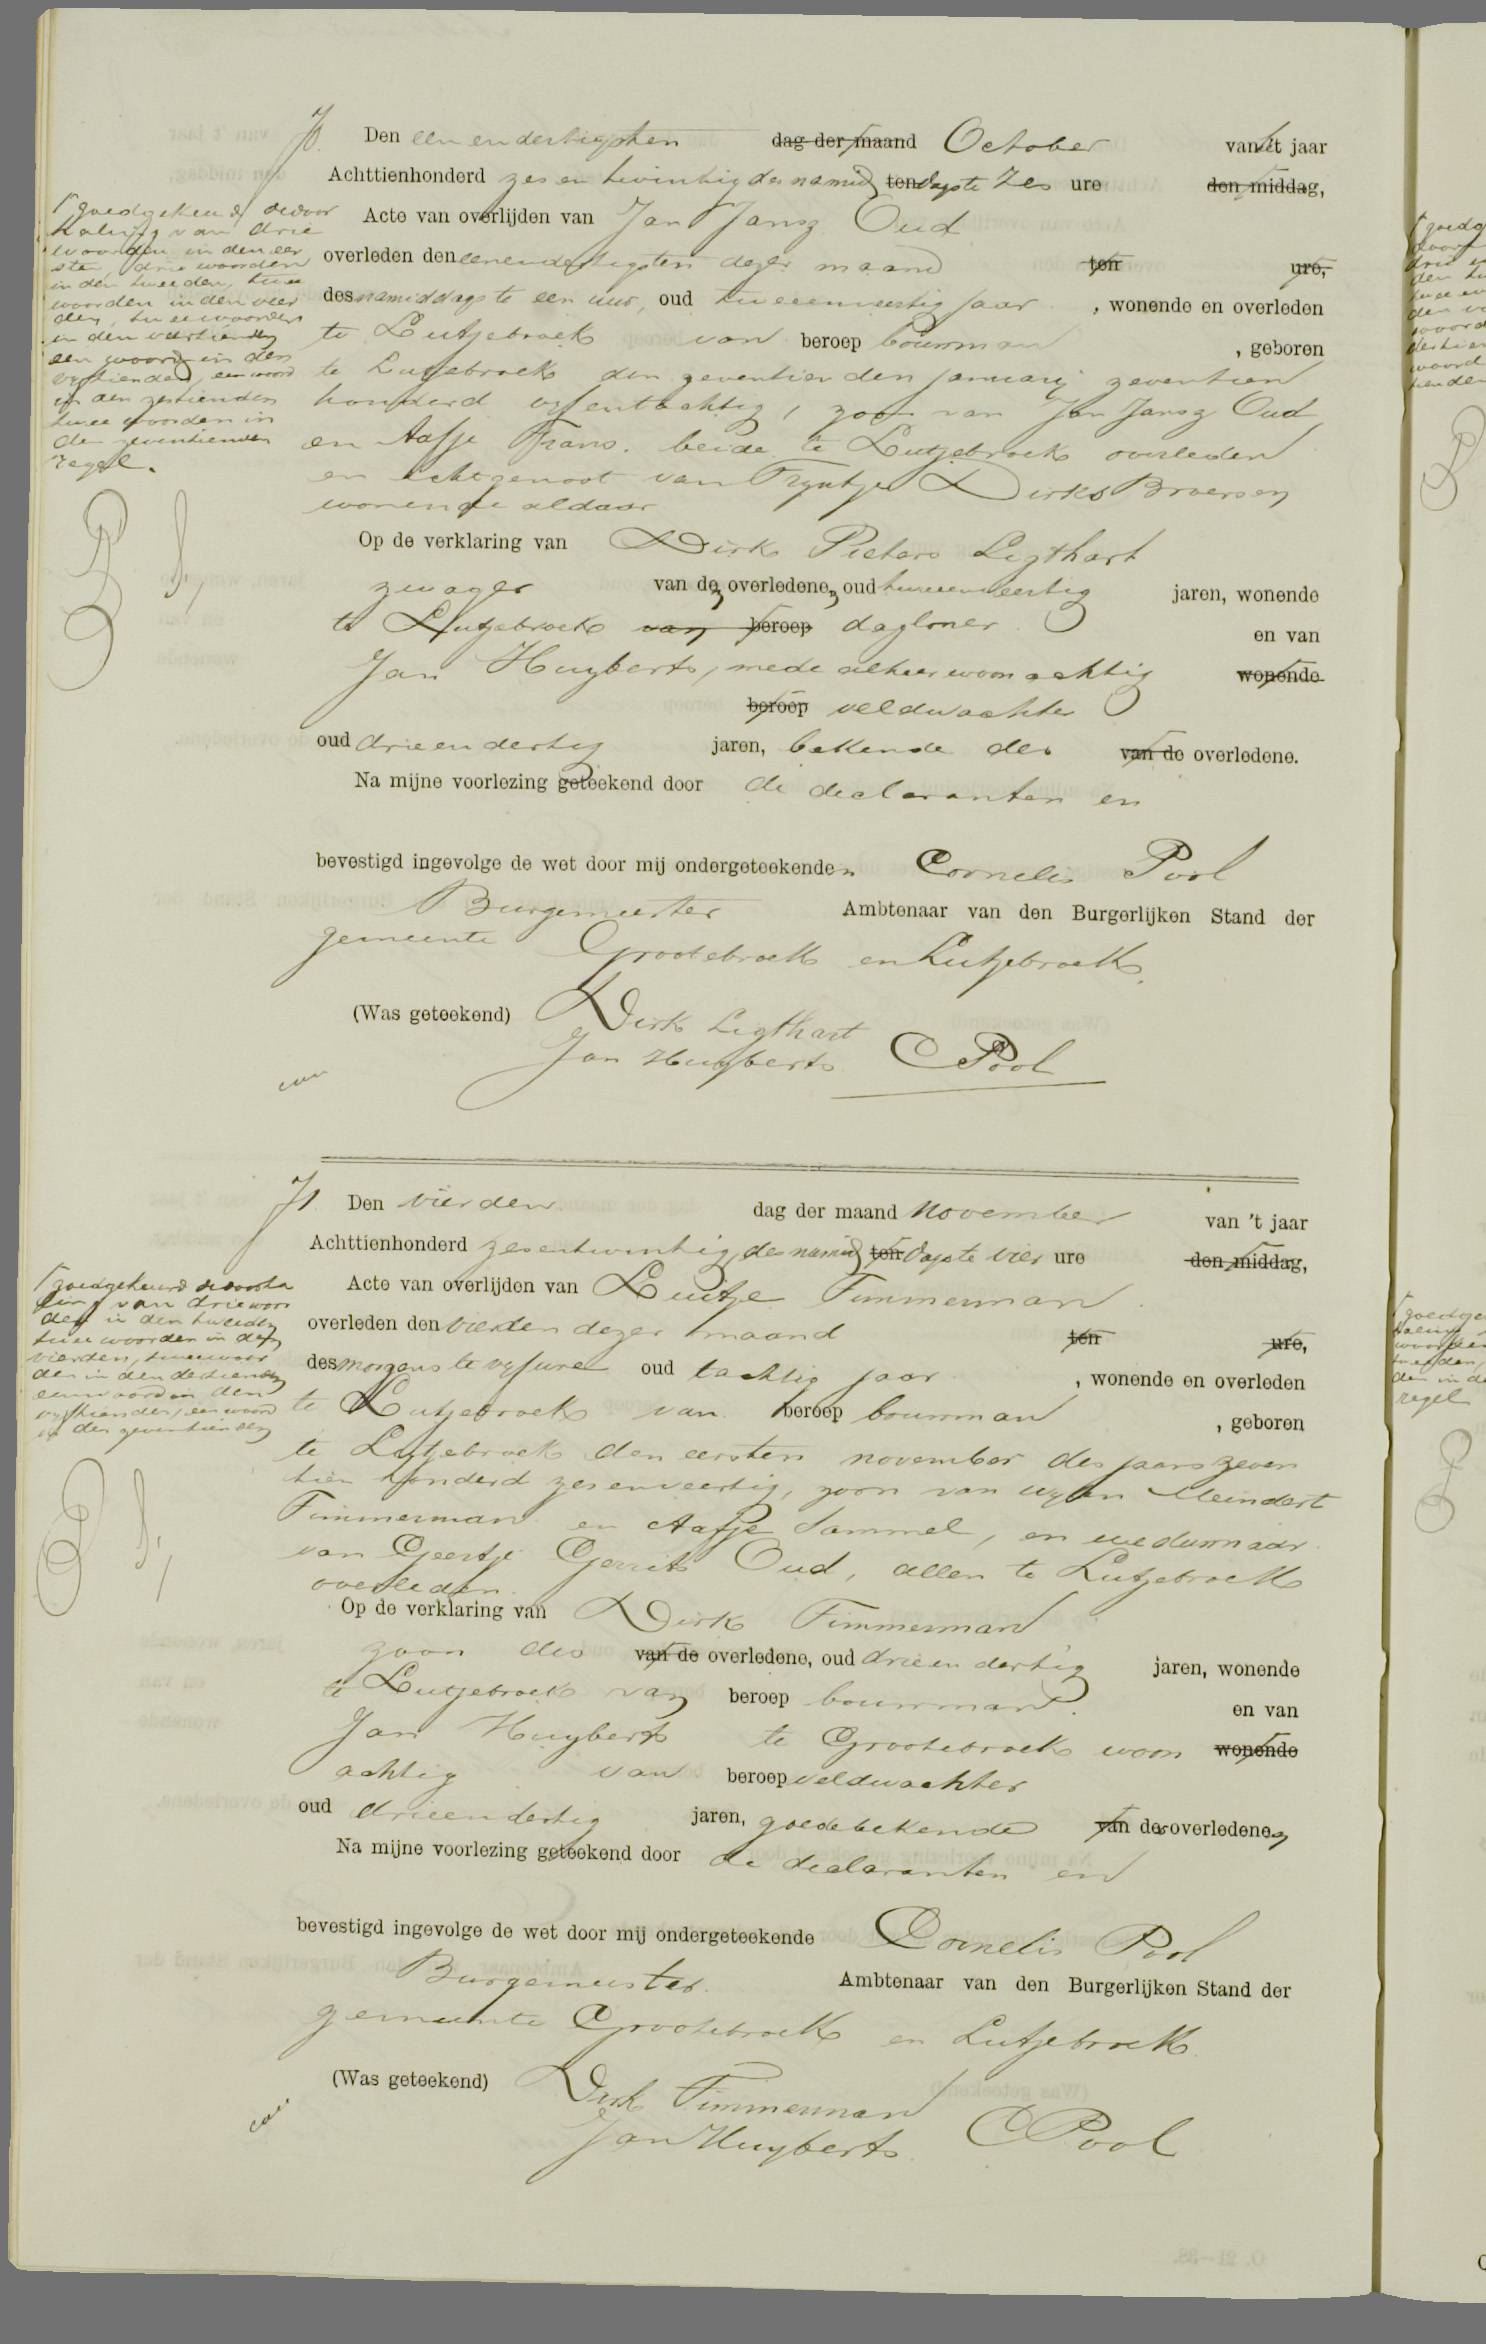 70. Den een en dertigsten dag der maand October van het jaar
Achttienhonderd zes en twintig des namid ten dags te zes ure den middag,
Acte van overlijden van Jan Jansz Oud
overleden den eenendertigsten dezer maand ten ure,
des namiddags te een uur, oud tweeenveertig jaar, wonende en overleden
te Lutjebroek van beroep bouwman, geboren
te Lutjebroek den zeventienden januarij zeventien
honderd vijfentachtig, zoon van Jan Jansz Oud
en Aafje Frans. beide te Lutjebroek overleden
en echtgenoot van Tryntje Dirks Broersen
wonende aldaar
Op de verklaring van Dirk Pieters Ligthart
zwager van den overledenen oud tweeenveertig jaren, wonende
te Lutjebroek van beroep dagloner en van
Jan Huyberts, mede alhier woonachtig wonende
beroep veldwachter
oud drieendertig jaren, bekende des van de overledene.
Na mijne voorlezing geteekend door de declaranten en
bevestigd ingevolge de wet door mij ondergeteekenden Cornelis Pool
Burgemeester Ambtenaar van den Burgerlijken Stand der
gemeente Grootebroek en Lutjebroek.
(Was geteekend) Dirk Ligthart
Jan Huyberts C Pool
goedgekeurd de door
haling van drie
woorden in den eer
sten, drie woorden
in den tweeden, twee
woorden in den vier
den, twee woorden
in den veertienden
een woord in den
vijftienden, een woord
in den zestienden
twee woorden in
den zeventienden
regel.
71. Den vierden dag der maand November van 't jaar
Achttienhonderd zesentwintig, des namid ten dags te vier ure den middag,
Acte van overlijden van Luitje Timmerman
overleden den vierden dezer maand ten ure,
des morgens te vijf ure oud tachtig jaar, wonende en overleden
te Lutjebroek van beroep bouwman, geboren
te Lutjebroek den eersten november des jaars zeven
tien honderd zesenveertig, zoon van wijlen Meindert
Timmerman en Aafje Sammel, en weduwnaar
van Geertje Gerrits Oud, allen te Lutjebroek
overleden.
Op de verklaring van Dirk Timmerman
zoon des van de overledene, oud drieendertig jaren, wonende
te Lutjebroek van beroep bouwman. en van
Jan Huyberts te Grootebroek woon wonende
achtig van beroep veldwachter
oud drieendertig jaren, goede bekende van des overledenen
Na mijne voorlezing geteekend door de declaranten en
bevestigd ingevolge de wet door mij ondergeteekende Cornelis Pool
Burgemeester Ambtenaar van den Burgerlijken Stand der
gemeente Grootebroek en Lutjebroek
(Was geteekend) Dirk Timmerman
Jan Huyberts C Pool
goedgekeurd de doorha
ling van drie woor
den in den tweeden
twee woorden in den
vierden, twee woor
den in den dertienden
een woord in den
vijftienden, een woord
in den zeventienden